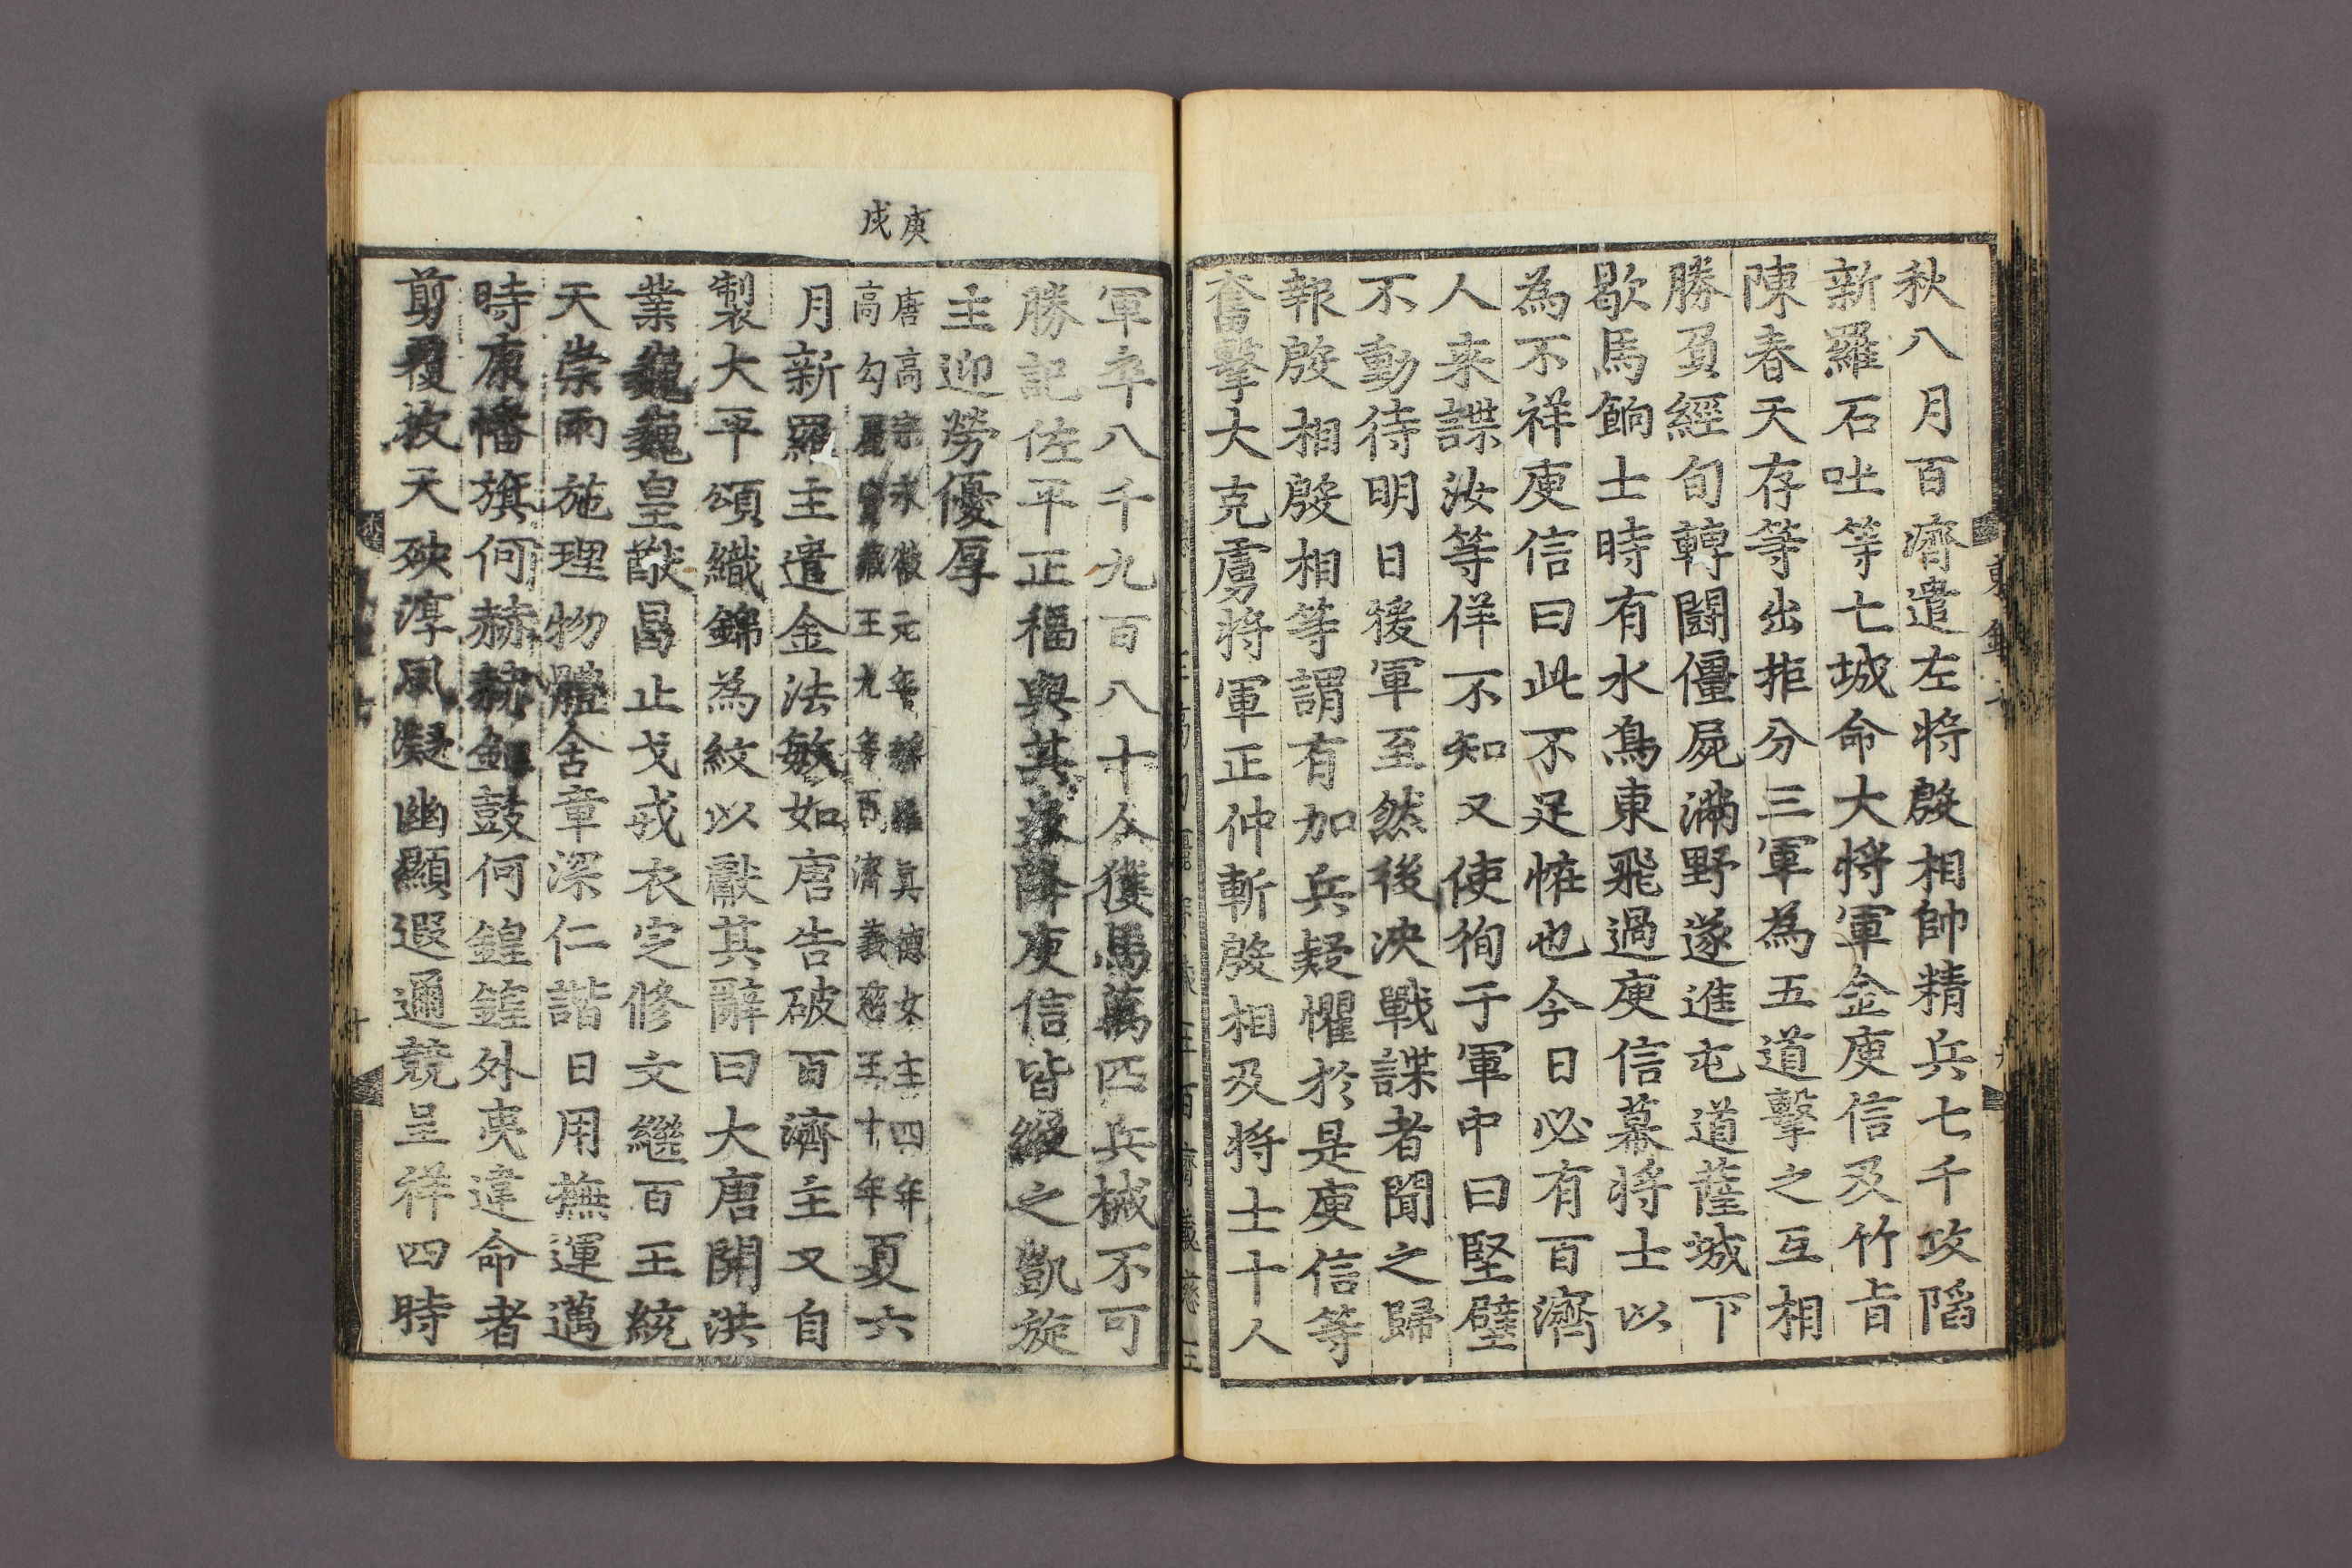 秋八月百濟遣左將殷相帥精兵七千攻陷
新羅石吐等七城命大將軍金庾信及竹旨
陳春天存等出拒分三軍為五道擊之互相
勝負經旬轉闘僵屍滿野遂進屯道薩城下
歇馬餉士時有水鳥東飛過庾信幕將士以
為不祥庾信曰此不足恠也今日必有百濟
人来諜汝等佯不知又使徇于軍中曰堅壁
不動待明日援軍至然後決戰諜者聞之歸
報殷相殷相等謂有加兵疑懼於是庾信等
奮擊大克虜將軍正仲斬殷相及將士十人
軍卒八千九百八十人獲馬萬匹兵械不可
勝記佐平正福與其衆降庾信皆縱之凱旋
主迎勞優厚
庚戌
唐高宗永徽元年新羅真德女主四年
高勾麗寶藏王九年百濟義慈王十年夏六
月新羅主遣金法敏如唐告破百濟主又自
製大平頌織錦為紋以獻其辭曰大唐開洪
業巍巍皇猷昌止戈戎衣定修文繼百王統
天崇雨施理物體含章深仁諧日用撫運邁
時康幡旗何赫赫鉦鼓何鍠鍠外夷違命者
剪覆被天殃淳風凝幽顯遐邇競呈祥四時